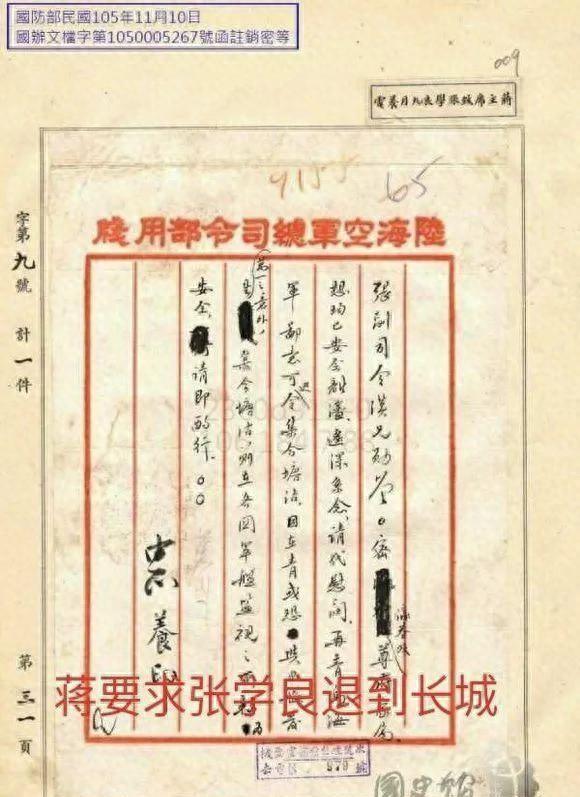 國防部民國105年11月10日
國辦文檔字第1050005267號函註銷密等
009
蔣主席致張學良九月養電
65
陸海空軍總司令部用牋
張副司令漢兄勛鑒。密尊府眷屬
想均已安全離瀋,遠深系念,請代慰問。再青島海
軍鄙意可迅令集合塘沽,因在青或恐
集合塘沽,則在各國軍艦監視之下
安全請即酌行。○○
中正養印
字第九號 計一件 第三一頁
蒋要求张学良退到长城
979
國史館